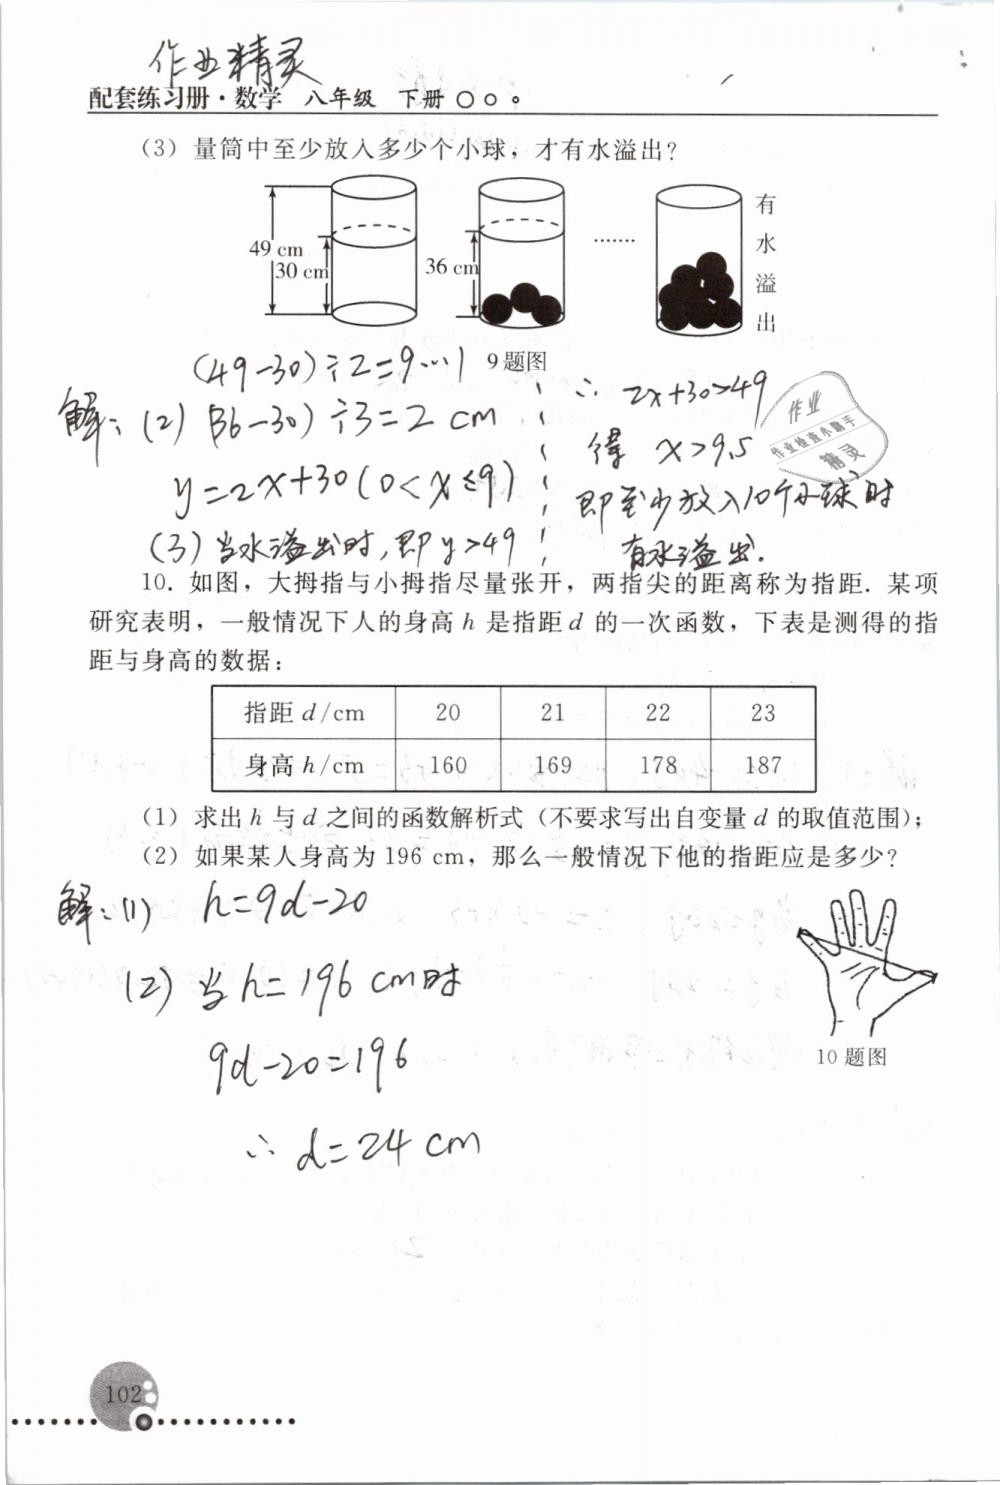 作业精灵
配套练习册·数学 八年级 下册
(3) 量筒中至少放入多少个小球，才有水溢出？
49 cm
30 cm
36 cm
.......
有
水
溢
出
9题图
(49-30)÷2=9…1
解：(2) (36-30)÷3=2 cm
y=2x+30(0<x≤9)
(3) 当水溢出时，即y>49
∴ 2x+30>49
得 x>9.5
即至少放入10个小球时
有水溢出.
作业
作业检查小助手
精灵
10. 如图，大拇指与小拇指尽量张开，两指尖的距离称为指距. 某项
研究表明，一般情况下人的身高 h 是指距 d 的一次函数，下表是测得的指
距与身高的数据：
指距 d/cm 20 21 22 23
身高 h/cm 160 169 178 187
(1) 求出 h 与 d 之间的函数解析式（不要求写出自变量 d 的取值范围）；
(2) 如果某人身高为 196 cm，那么一般情况下他的指距应是多少？
解：(1) h=9d-20
(2) 当h=196 cm时
9d-20=196
∴ d=24 cm
10 题图
102